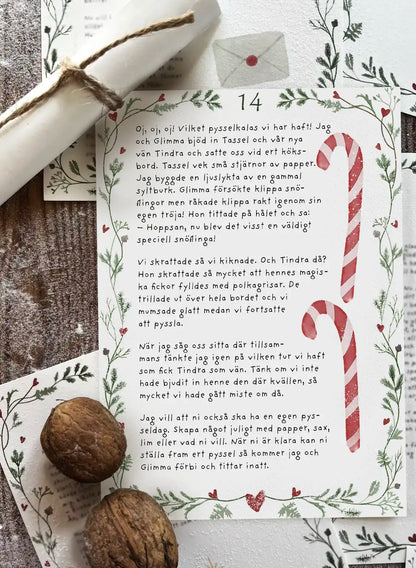 14
Oj, oj, oj! Vilket pysselkalas vi har haft! Jag
och Glimma bjöd in Tassel och vår nya
vän Tindra och satte oss vid ert köks-
bord. Tassel vek små stjärnor av papper.
Jag byggde en ljuslykta av en gammal
syltburk. Glimma försökte klippa snö-
flingor men råkade klippa rakt igenom sin
egen tröja! Hon tittade på hålet och sa:
– Hoppsan, nu blev det visst en väldigt
speciell snöflinga!
Vi skrattade så vi kiknade. Och Tindra då?
Hon skrattade så mycket att hennes magis-
ka fickor fylldes med polkagrisar. De
trillade ut över hela bordet och vi
mumsade glatt medan vi fortsatte
att pyssla.
När jag såg oss sitta där tillsam-
mans tänkte jag igen på vilken tur vi haft
som fick Tindra som vän. Tänk om vi inte
hade bjudit in henne den där kvällen, så
mycket vi hade gått miste om då.
Jag vill att ni också ska ha en egen pys-
seldag. Skapa något juligt med papper, sax,
lim eller vad ni vill. När ni är klara kan ni
ställa fram ert pyssel så kommer jag och
Glimma förbi och tittar inatt.